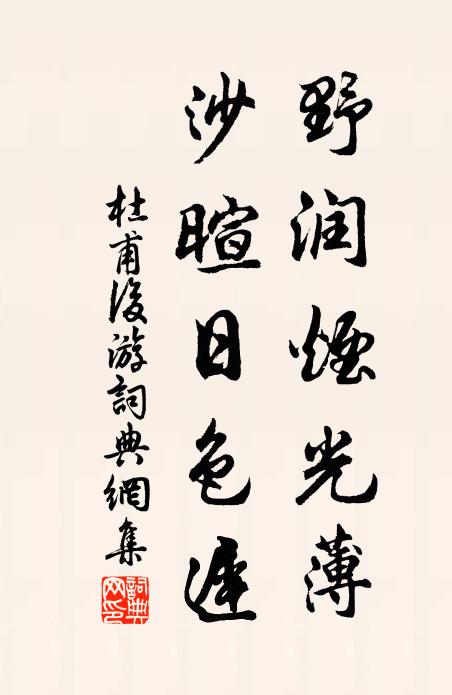 野润煙光薄
沙暄日色遲
杜甫後游詞典網集
詞典網印